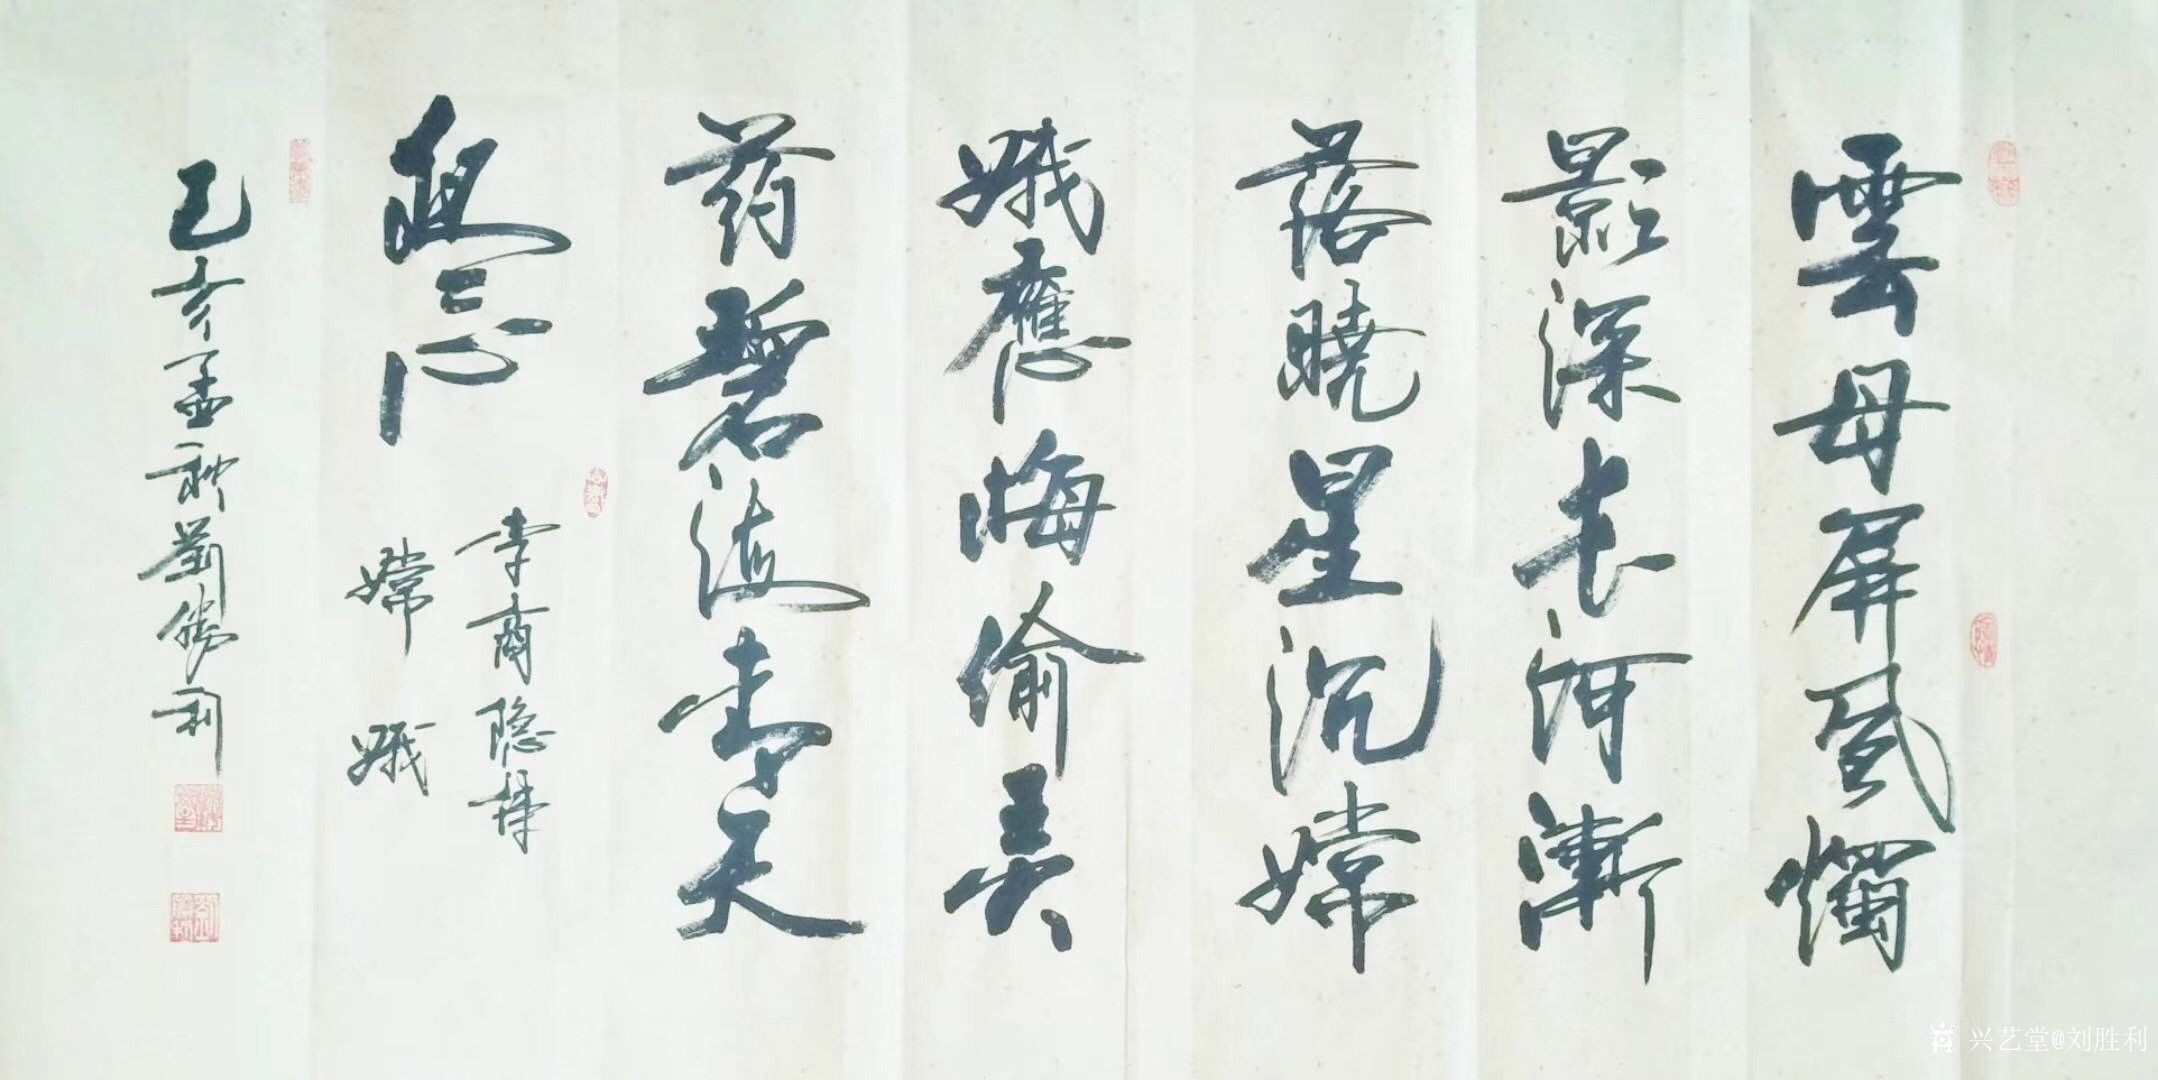 雲母屏風燭
影深長河漸
落曉星沉嫦
娥應悔偷灵
药碧海青天
夜〻心
李商隐
嫦娥
己亥孟秋劉勝利
兴艺堂@刘胜利